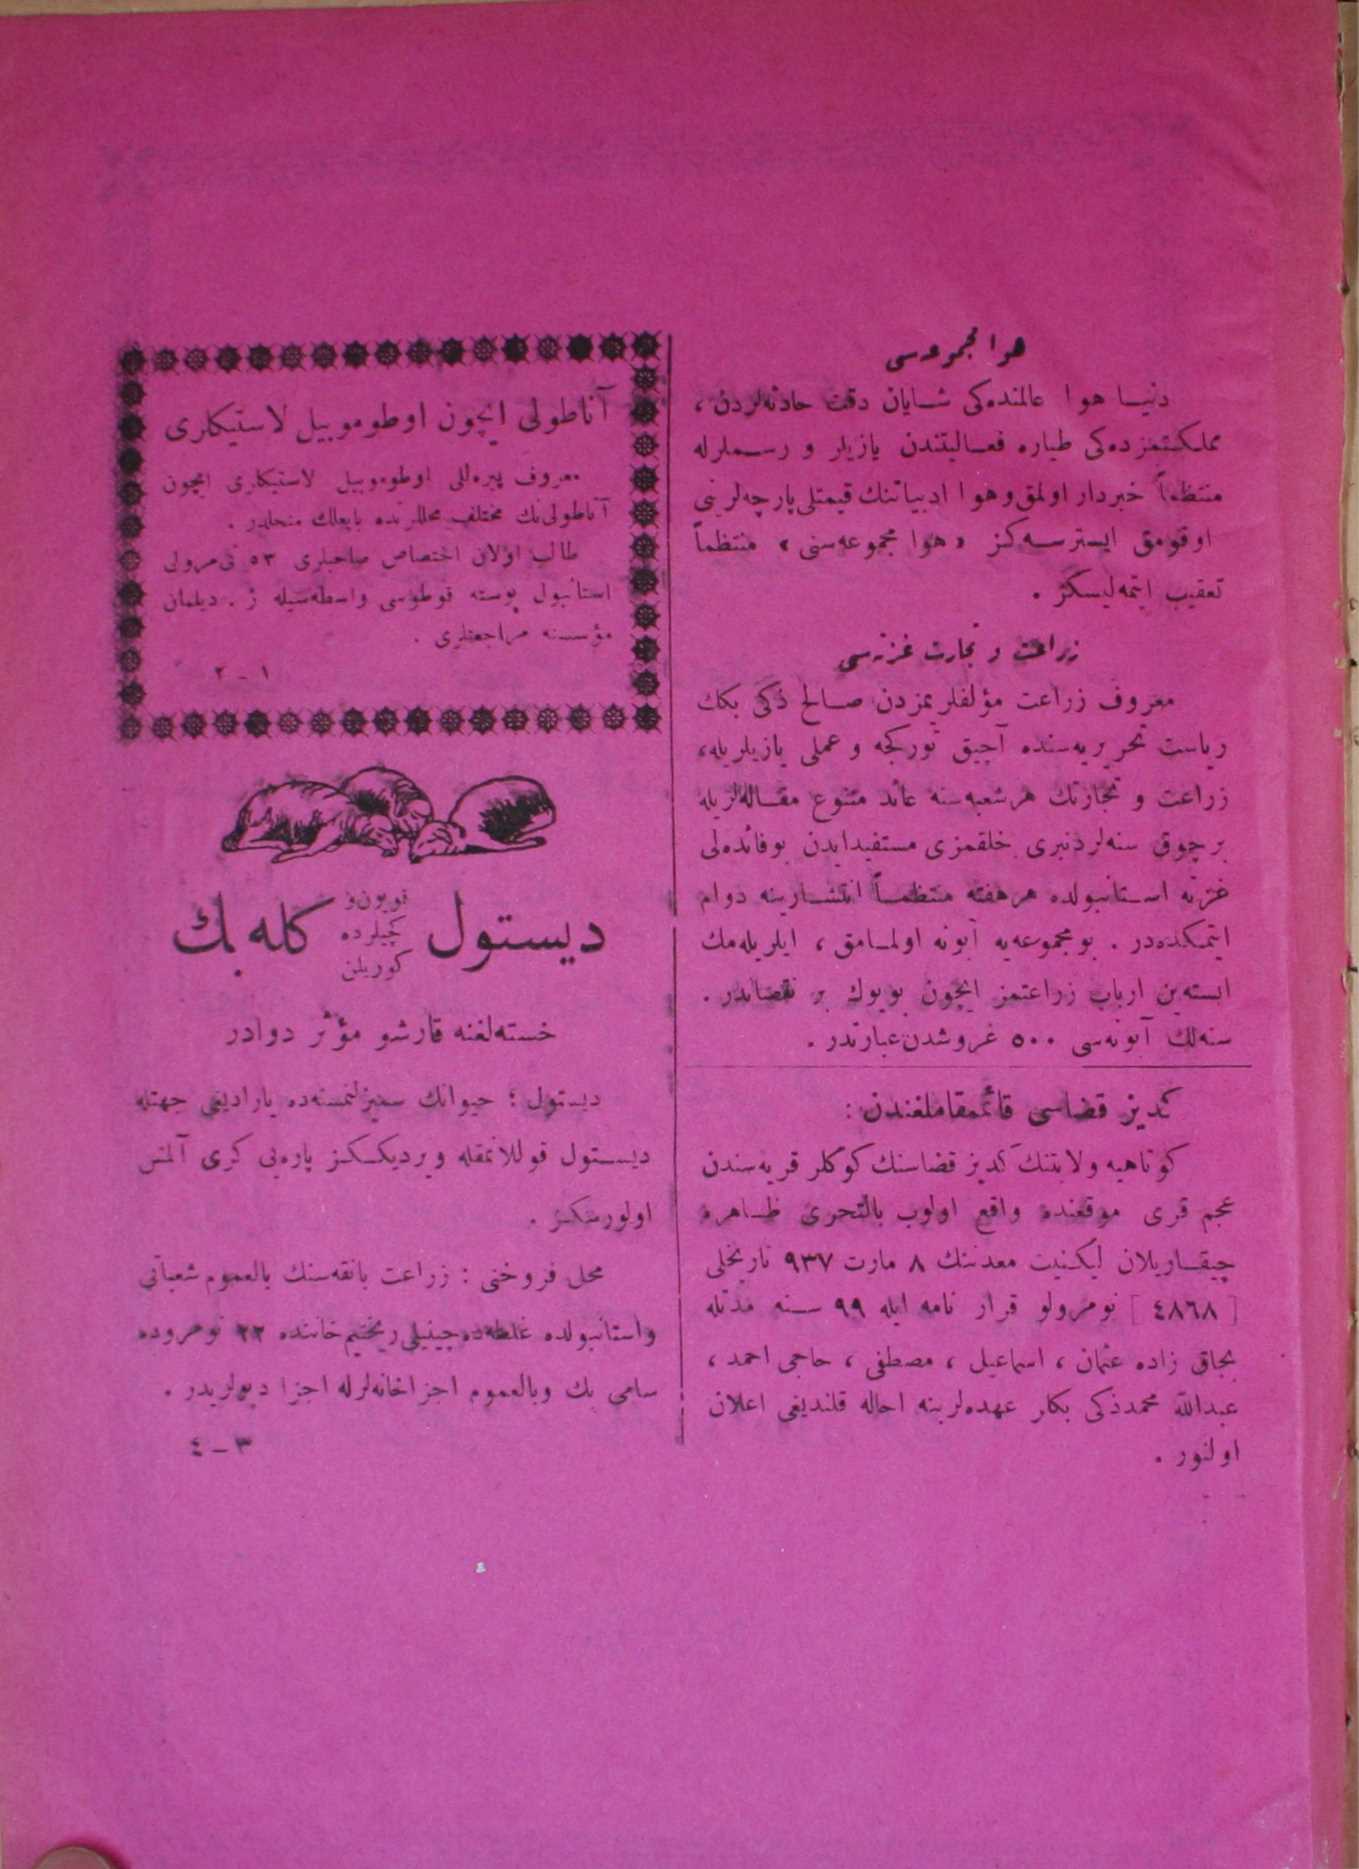 هوا مجموعه‌سی
دنیـا هوا عالمنده‌کی شـایان دقت حادثه‌لردن ،
مملکتمزده‌کی طیاره فعـالیتندن یازیلر و رسـملرله
منتظماً خبردار اولمق و هوا ادبیاتنك قیمتلی پارچه‌لرینی
اوقومق ایسترسـه‌کز « هوا مجموعه‌سنی » منتظماً
تعقیب ایتمه‌لیسکز .
زراعت و تجارت غزته‌سی
معروف زراعت مؤلفلریمزدن صـالح ذکی بکك
ریاست تحریریه‌سنده آچیق تورکجه و عملی یازیلریله،
زراعت و تجارتك هر شعبه‌سنه عائد متنوع مقـاله‌لریله
بر چوق سنه‌لردنبری خلقمزی مستفید ایدن بو فائده‌لی
غزته اسـتانبولده هر هفته منتظمـاً انتشـارینه دوام
ایتمکده‌در . بو مجموعه‌یه آبونه اولمـامق ، ایلریله‌مك
ایسته‌ین ارباب زراعتمز ایچون بویوك بر نقصاندر .
سنه‌لك آبونه‌سی ٥٠٠ غروشدن عبارتدر .
کدیز قضاسی قائممقاملغندن :
کوتاهیه ولایتنك کدیز قضاسنك کوکلر قریه‌سندن
عجم قری موقعنده واقع اولوب بالتحری ظـاهره
چیقـاریلان لیکنیت معدننك ٨ مارت ٩٣٧ تاریخلی
[ ٤٨٦٨ ] نومرولو قرار نامه ایله ٩٩ سـنه مدتله
زاده عثمان ، اسماعیل ، مصطفی ، حاجی احمد ،
عبدالله محمد ذکی بکلر عهده‌لرینه احاله قلندیغی اعلان
اولنور .
آناطولی ایچون اوطوموبیل لاستیکلری
معروف پیره‌للی اوطوموبیل لاستیکلری ایچون
آناطولی‌نك مختلف محللرنده بایعلك منحلدر .
طالب اولان اختصاص صاحبلری ٥٣ نومرولی
استانبول پوسته قوطوسی واسطه‌سیله ژ . دیلمان
مؤسسه‌سنه مراجعتلری .
١ – ٢
دیستول
قویون و
کچیلرده
کوریلن
کله‌بك
خسته‌لغنه قارشو مؤثر دوادر
دیستول ؛ حیوانك سمیزلنمسنه‌ده یارادیغی جهتله
دیسـتول قوللانمقله ویردیککـز پاره‌یی کری آلمش
اولورسکز .
محل فروختی : زراعت بانقه‌سنك بالعموم شعباتی
واستانبولده غلطه‌ده چینیلی ریختیم خاننده ٢٢ نومروده
سامی بك وبالعموم اجزاخانه‌لرله اجزا دپولریدر .
٣ – ٤